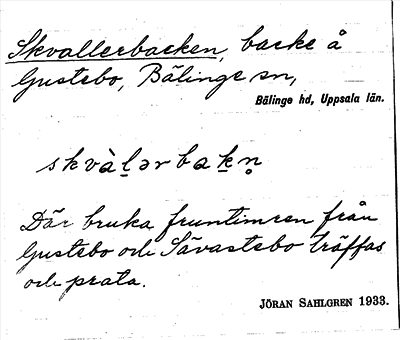 Skvallerbacken, backe å
Gustebo, Bälinge sn,
Bälinge hd, Uppsala län.
skvàl̠ərbak̠n̥
Där bruka fruntimren från
Gustebo och Sävastebo träffas
och prata.
JÖRAN SAHLGREN 1933.